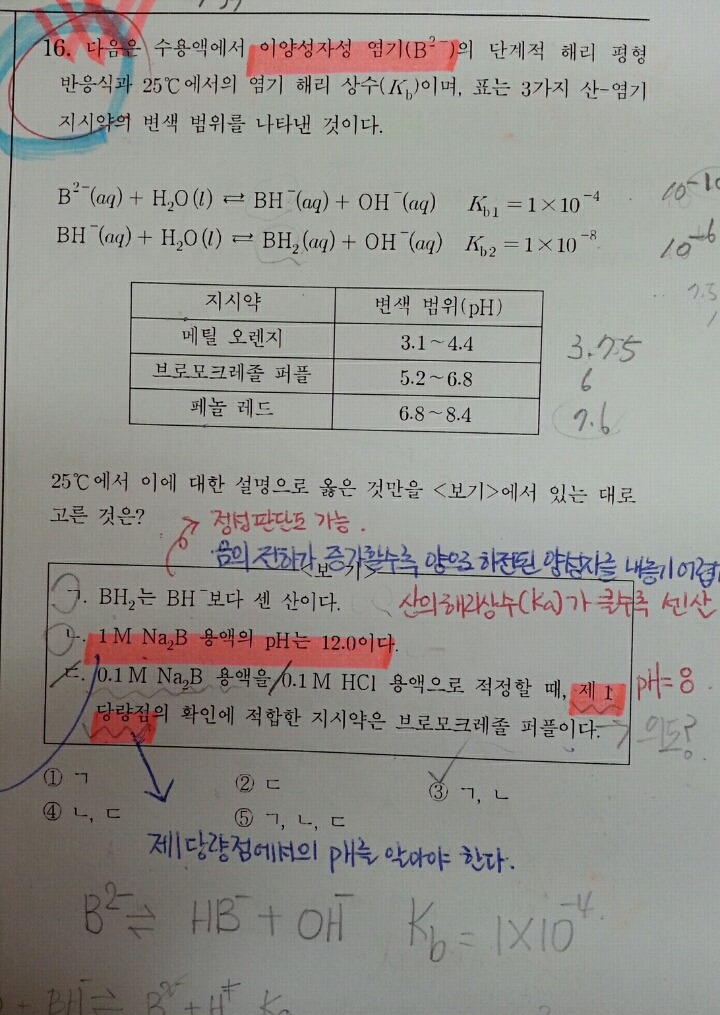 16. 다음은 수용액에서 이양성자성 염기(B²⁻)의 단계적 해리 평형
반응식과 25℃에서의 염기 해리 상수(K_b)이며, 표는 3가지 산-염기
지시약의 변색 범위를 나타낸 것이다.
B²⁻(aq) + H₂O(l) ⇌ BH⁻(aq) + OH⁻(aq) K_b1 = 1×10⁻⁴
10⁻¹⁰
BH⁻(aq) + H₂O(l) ⇌ BH₂(aq) + OH⁻(aq) K_b2 = 1×10⁻⁸
10⁻⁶
지시약 변색 범위(pH)
메틸 오렌지 3.1~4.4 3.75
브로모크레졸 퍼플 5.2~6.8 6
페놀 레드 6.8~8.4 7.6
25℃에서 이에 대한 설명으로 옳은 것만을 <보기>에서 있는 대로
고른 것은?
정성판단도 가능.
음의 전하가 증가할수록 양으로 하전된 양성자를 내놓기 어렵
<보기>
ㄱ. BH₂는 BH⁻보다 센 산이다.
산의 해리상수(Ka)가 클수록 센산
ㄴ. 1 M Na₂B 용액의 pH는 12.0이다.
ㄷ. 0.1 M Na₂B 용액을 0.1 M HCl 용액으로 적정할 때, 제 1
pH=8
당량점의 확인에 적합한 지시약은 브로모크레졸 퍼플이다.
의도?
① ㄱ ② ㄷ ③ ㄱ, ㄴ
④ ㄴ, ㄷ ⑤ ㄱ, ㄴ, ㄷ
제1당량점에서의 pH를 알아야 한다.
B²⁻ ⇌ HB⁻ + OH⁻ K_b = 1×10⁻⁴.